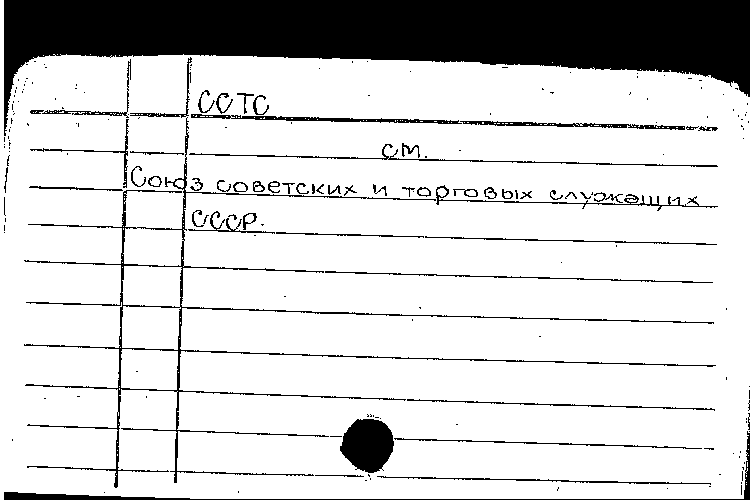 ССТС
см.
Союз советских и торговых служащих
СССР.